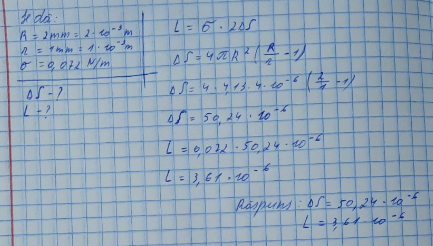 Se dă:
R = 2mm = 2·10⁻³m
r = 1mm = 1·10⁻³m
σ = 0,072 N/m
ΔS - ?
L - ?
L = σ · ΔS
ΔS = 4πR² (R/r - 1)
ΔS = 4 · 3,14 · 4 · 10⁻⁶ (2/1 - 1)
ΔS = 50,24 · 10⁻⁶
L = 0,072 · 50,24 · 10⁻⁶
L = 3,61 · 10⁻⁶
Răspuns: ΔS = 50,24 · 10⁻⁶
L = 3,61 · 10⁻⁶